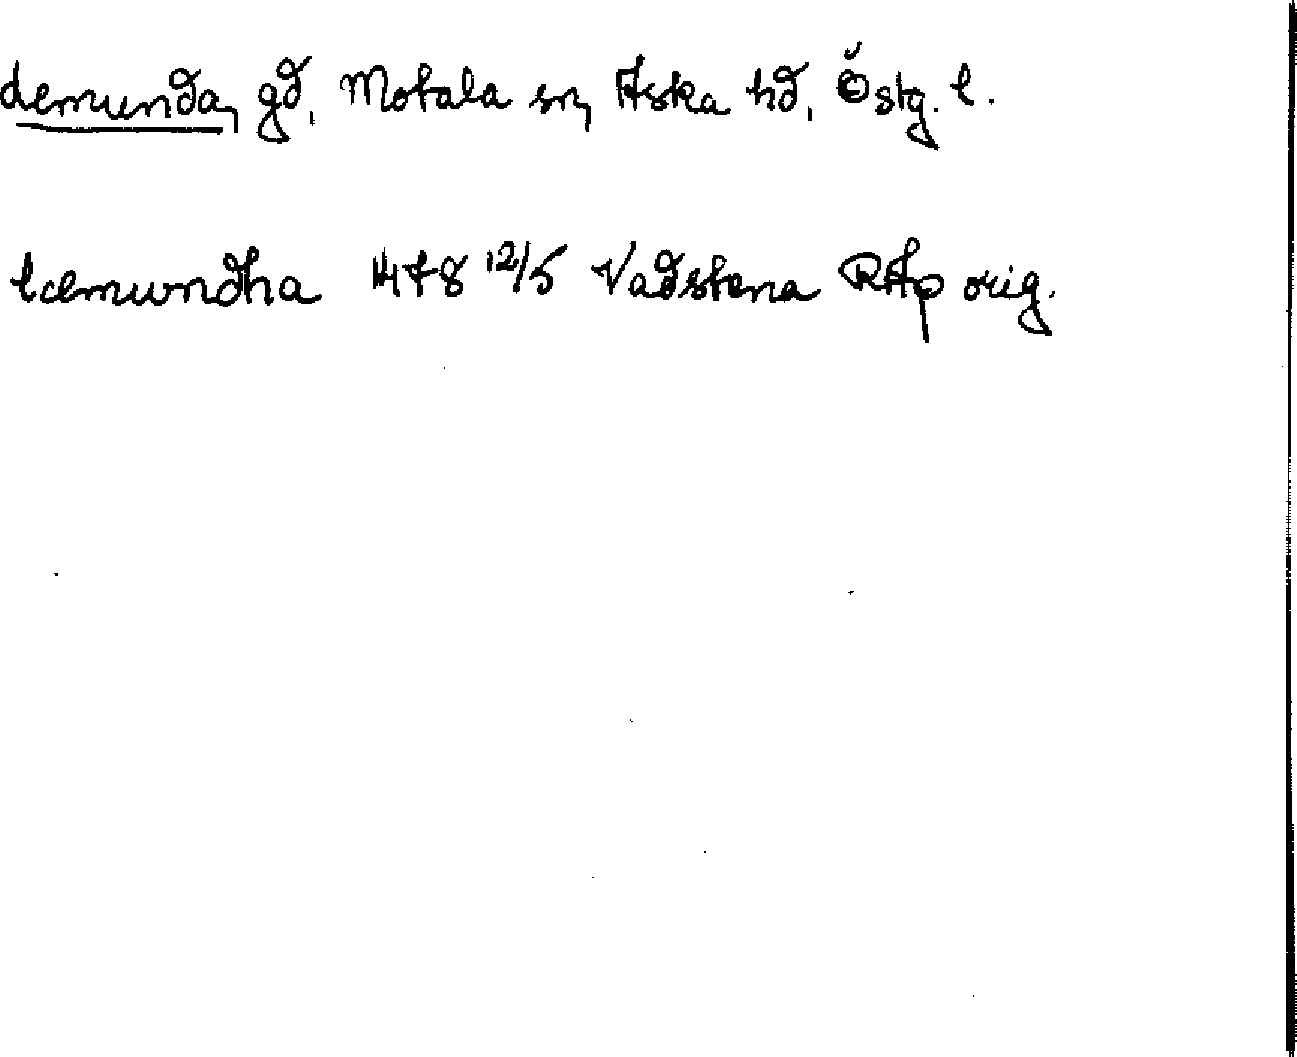 Lemunda, gd, Motala sn, Aska hd, Östg. l.
læmundha 1478 12/5 Vadstena RAp orig.